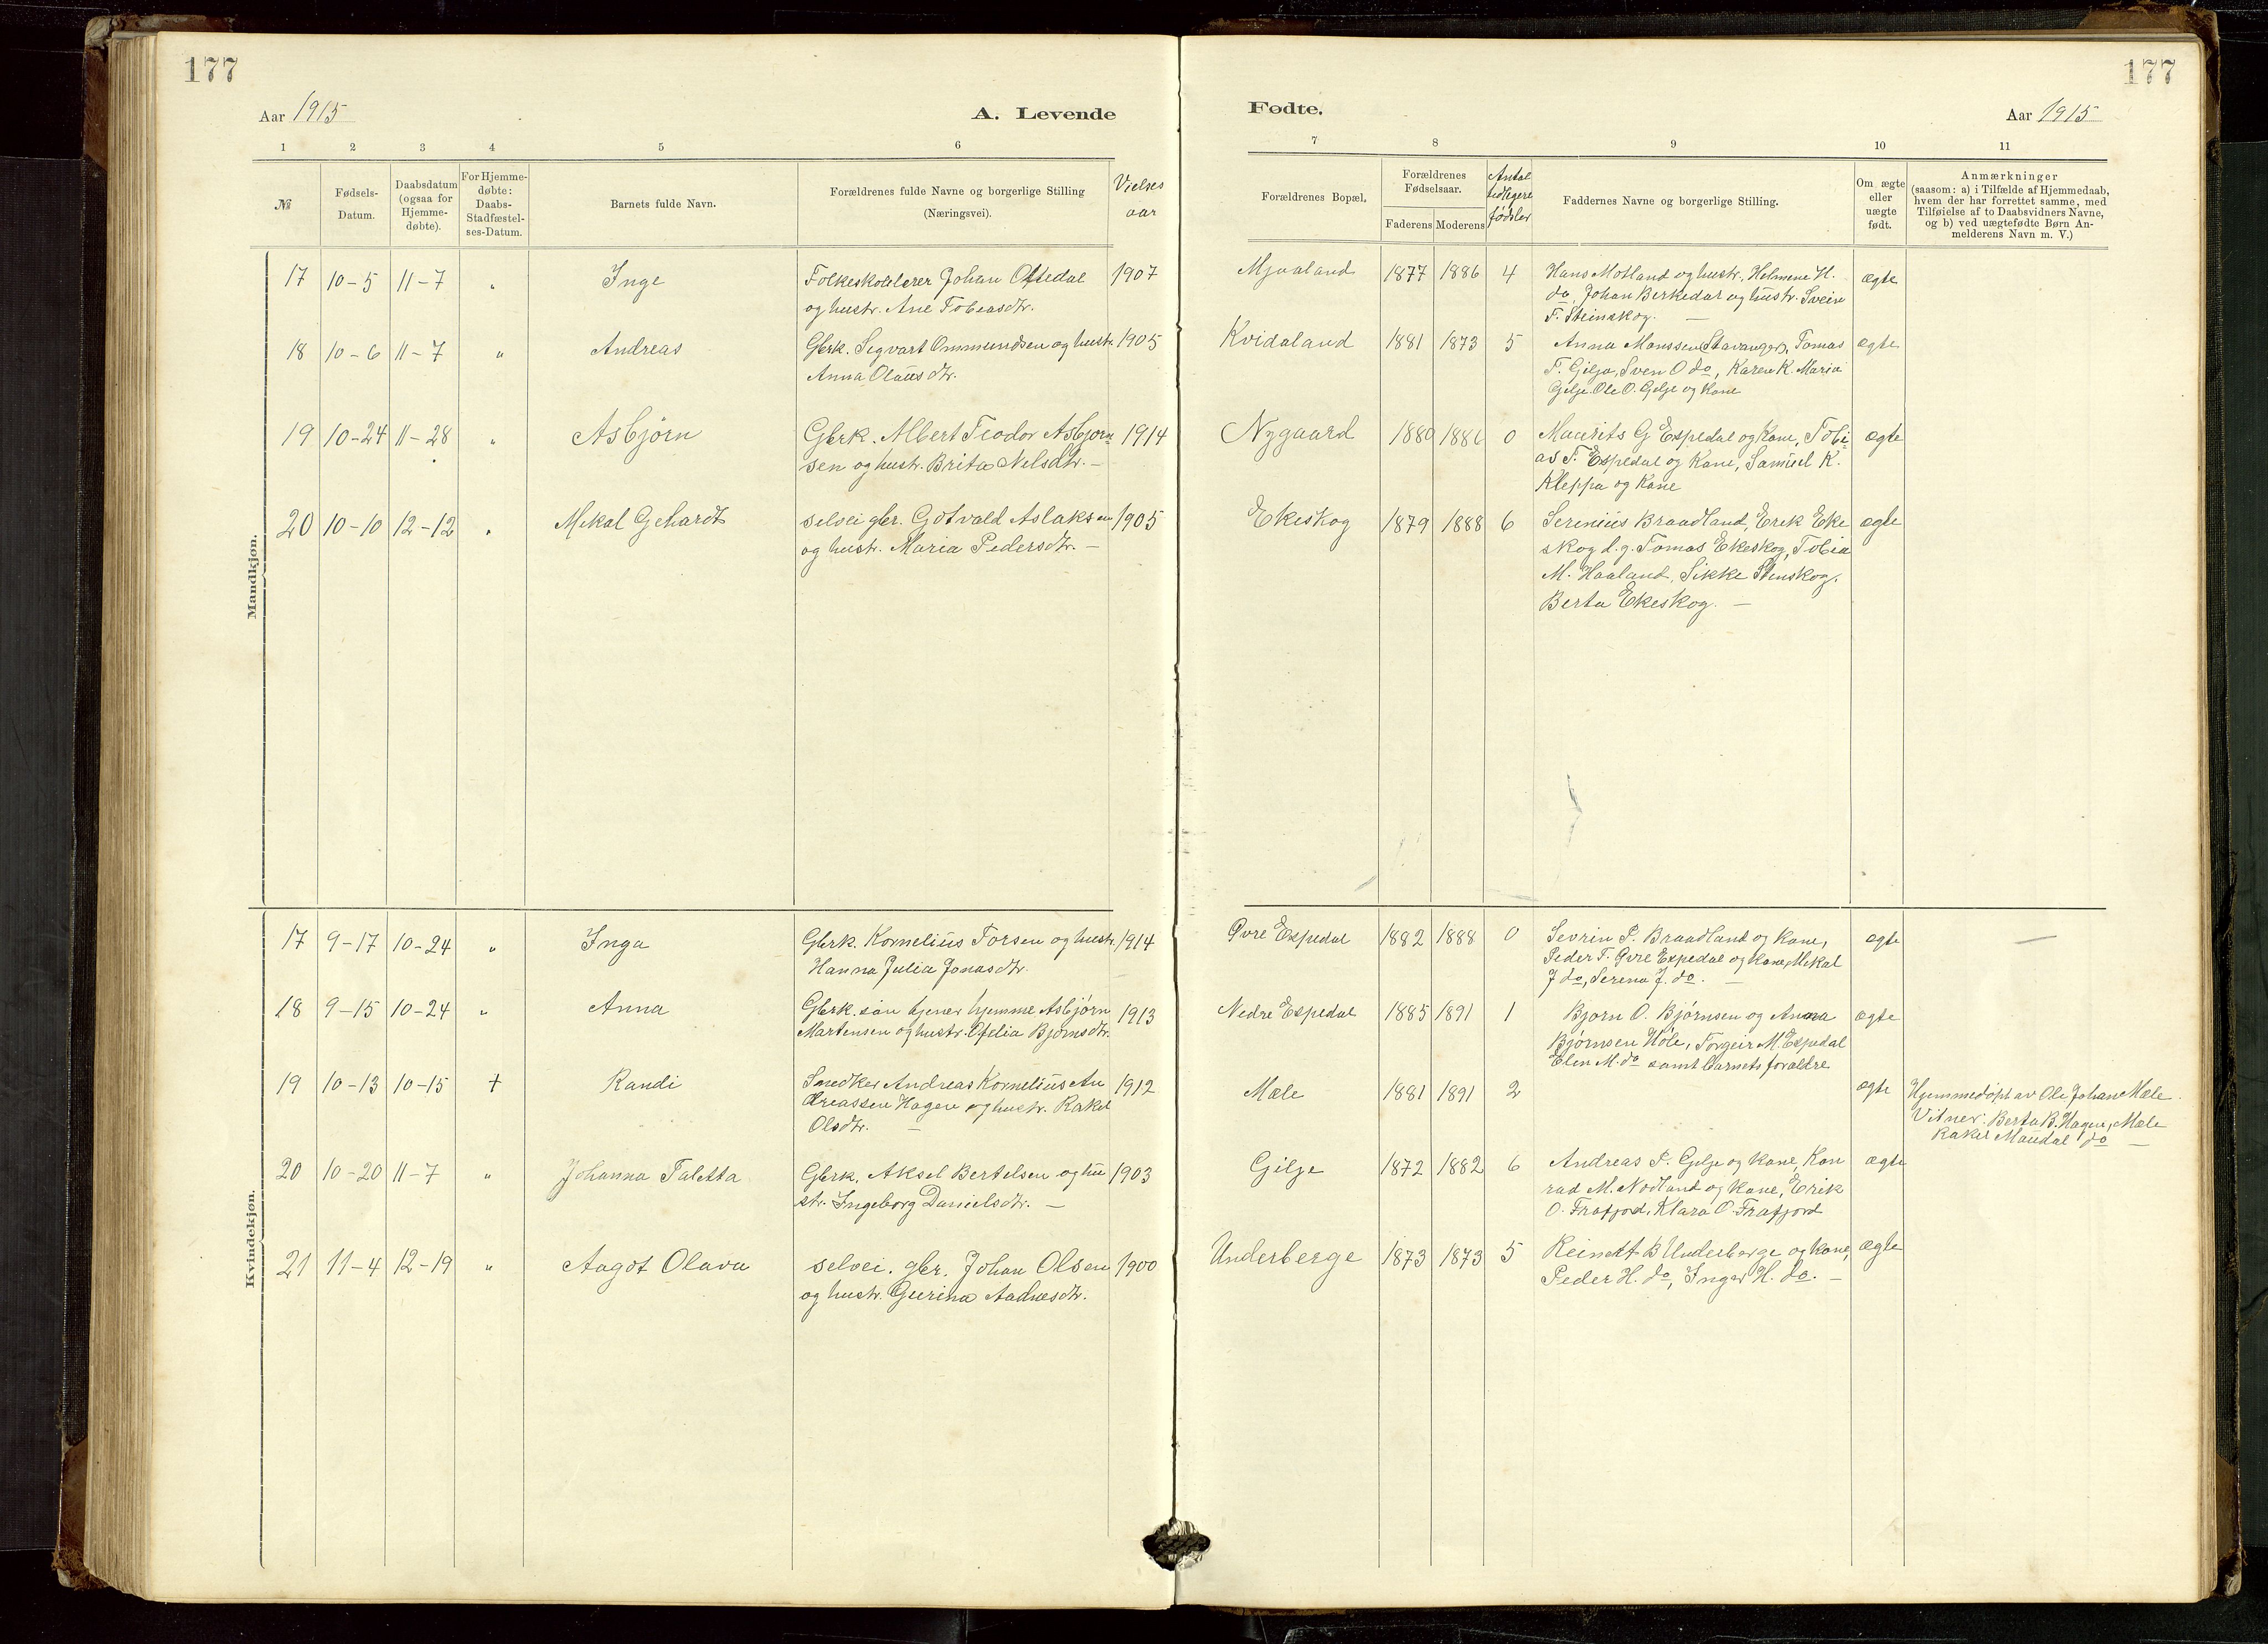 177
Aar 1915
A. Levende
1 2 3 4 5 6
№
Fødsels-
Datum.
Daabsdatum
(ogsaa for
Hjemme-
døbte).
For Hjemme-
døbte:
Daabs-
Stadfæstel-
ses-Datum.
Barnets fulde Navn.
Forældrenes fulde Navne og borgerlige Stilling
(Næringsvei).
Vielses
aar
Mandkjøn.
17 10-5 11-7 " Inge Folkeskolelærer Johan Oftedal 1907
og hustr. Ane Tobiasdtr.
18 10-6 11-7 " Andreas Gbrk. Sigvart Ommundsen og hustr. 1905
Anna Olausdtr.
19 10-24 11-28 " Asbjørn Gbrk. Albert Teodor Asbjørn 1914
sen og hustr. Brita Nelsdtr. —
20 10-10 12-12 " Mikal Gehardt selvei gbr. Gotvald Aslaksen 1905
og hustr. Maria Pedersdtr. —
Kvindekjøn.
17 9-17 10-24 " Inga Gbrk. Kornelius Torsen og hustr. 1914
Hanna Julia Jonasdtr.
18 9-15 10-24 " Anna Gbrk. søn tjener hjemme Asbjørn 1913
Martensen og hustr. Ofelia Bjørnsdtr.
19 10-13 10-15 † Randi Snedker Andreas Kornelius An 1912
dreassen Hagen og hustr. Rakel
Olsdtr. —
20 10-20 11-7 " Johanna Taletta Gbrk. Aksel Bertelsen og hu 1903
str. Ingeborg Danielsdtr. —
21 11-4 12-19 " Aagot Olava selvei. gbr. Johan Olsen 1900
og hustr. Gurina Aadnesdtr.
177
Fødte.
Aar 1915
7 8 9 10 11
Forældrenes Bopæl.
Forældrenes
Fødselsaar.
Faderens Moderens
Antal
tidligere
fødsler
Faddernes Navne og borgerlige Stilling.
Om ægte
eller
uægte
født.
Anmærkninger
(saasom: a) i Tilfælde af Hjemmedaab,
hvem der har forrettet samme, med
Tilføielse af to Daabsvidners Navne,
og b) ved uægtefødte Børn An-
melderens Navn m. V.)
Mjaaland 1877 1886 4 Hans Motland og hustr. Helmine H. ægte
do, Johan Berkedal og hustr. Svein
T. Steinskog. —
Kvidaland 1881 1873 5 Anna Monssen (Stavanger), Tomas ægte
T. Gilja, Sven O do, Karen K. Maria
Gilje Ole O. Gilje og Kone
Nygaard 1880 1886 0 Maurits G Espedal og Kone, Tobi- ægte
as T. Espedal og Kone, Samuel K.
Kleppa og Kone
Ekeskog 1879 1888 6 Serenius Braadland, Erik Eke ægte
skog d.y. Tomas Ekeskog, Tobia
M. Haaland, Sikke Stenskog.
Berta Ekeskog. —
Øvre Espedal 1882 1888 0 Sevrin P. Braadland og Kone, ægte —
Peder T. Øvre Espedal og Kone, Mikal
J do, Serena J. do. —
Nedre Espedal 1885 1891 1 Bjørn O. Bjørnsen og Anna ægte
Bjørnsen Høle, Torgeir M. Espedal
Elen M. do samt barnets forældre
Mæle 1881 1891 2 ægte Hjemmedøpt av Ole Johan Mæle.
Vitner: Berta B. Hagen, Mæle
Rakel Maudal do —
Gilje 1872 1882 6 Andreas P. Gilje og kone, Kon ægte
rad M. Nodland og Kone, Erik
O. Frafjord, Klara O. Frafjord
Underberge 1873 1873 5 Reinert B Underberge og kone, ægte
Peder H. do, Inger H. do. —